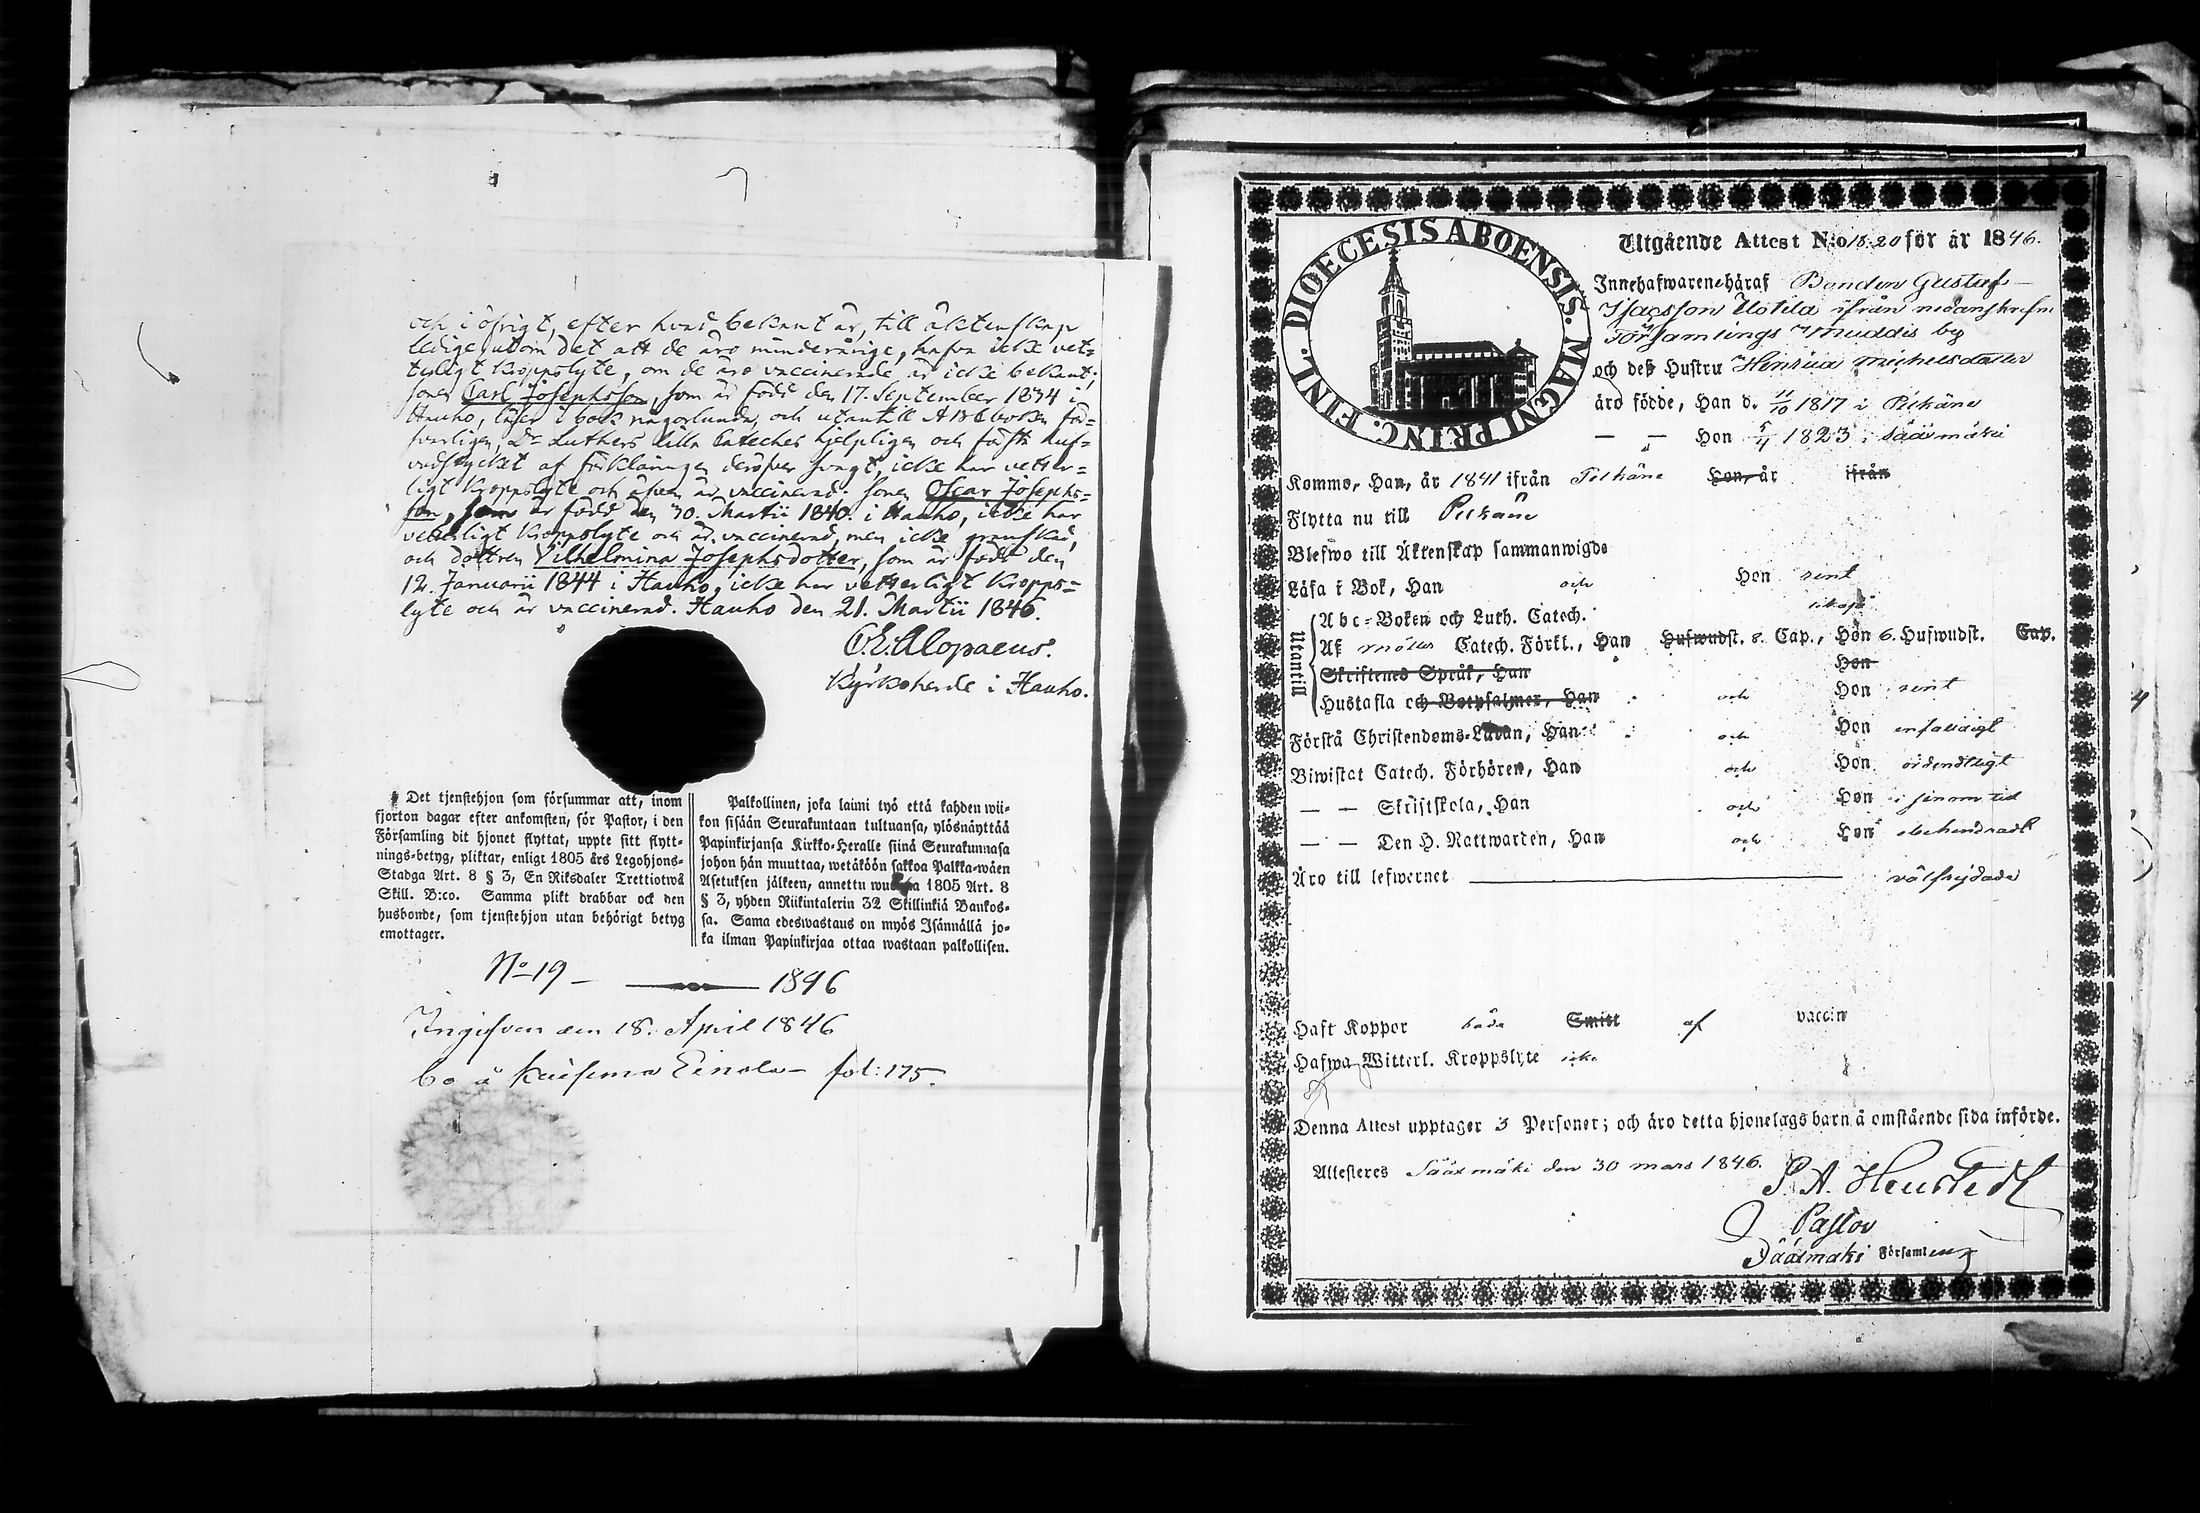 och i öfrigt, efter hvad bekant är, till äktenskap
ledige, utom det att de äro minderårige, hafva icke vet-
terligt Kroppslyte, om de äro vaccinerade är icke bekant;
sonen Carl Josephsson, som är född den 17. September 1834 i
Hauho, läser i bok någorlunda, och utantill ABC boken för-
svarligen, Dr Luthers lilla Cateches hjelpligen och första huf-
vudstycket af förklaringen deröfver svagt, icke har vetter-
ligt Kroppslyte och äfven är vaccinerad; sonen Oscar Josephs-
son, som är född den 30. Martii 1840 i Hauho, icke har
vetterligt Kroppslyte och är vaccinerad, men icke
och dottren Vilhelmina Josephsdotter, som är född den
12. Januarii 1844 i Hauho, icke har vetterligt Kropps-
lyte och är vaccinerad. Hauho den 21. Martii 1846.
Alopaeus.
Kyrkoherde i Hauho.
Det tjenstehjon som försummar att, inom
fjorton dagar efter ankomsten, för Pastor, i den
Församling dit hjonet flyttat, uppte sitt flytt-
nings-betyg, pliktar, enligt 1805 års Legohjons-
Stadga Art. 8 § 3, En Riksdaler Trettiotwå
Skill. B:co. Samma plikt drabbar ock den
husbonde, som tjenstehjon utan behörigt betyg
emottager.
Palkollinen, joka laimi työ että kahden wii-
kon sisään Seurakuntaan tultuansa, ylösnäyttää
Papinkirjansa Kirkko-Heralle siinä Seurakunnasa
johon hän muuttaa, wetäköön sakkoa Palkka-wäen
Asetuksen jälkeen, annettu wuonna 1805 Art. 8
§ 3, yhden Riikintalerin 32 Skillinkiä Bankos-
sa. Sama edeswastaus on myös Isännällä jo-
ka ilman Papinkirjaa ottaa wastaan palkollisen.
No 19 - 1846
Ingifven den 18. April 1846
Einola - fol: 175.
DIOECESIS ABOENSIS. MAGNI PRINC. FINL.
Utgående Attest N:o 18-20 för år 1846.
Innehafwarene häraf Bonden Gustaf
Isacsson Uotila ifrån nedanskrefne
Församlings Muddis by
och deß Hustru Henrica Michelsdotter
äro födde, Han d. 11/10 1817 i Pelkäne
— — Hon 5/4 1823 i Sääxmäki
Kommo, Han, år 1841 ifrån Pelkäne Hon, år ifrån
Flytta nu till Pelkäne
Blefwo till Äktenskap sammanwigde
Läsa i Bok, Han och Hon rent
Utantill
Abc-Boken och Luth. Catech.
Af Möllers Catech. Förkl., Han Hufwudst. 8. Cap., Hon 6. Hufwudst. Cap.
Skriftenes Språk, Han Hon
Hustafla och Botpsalmer, Han och Hon rent
Förstå Christendoms-Läran, Han och Hon enfaldigt
Biwistat Catech. Förhören, Han och Hon ordendtligt
— — Skriftskola, Han och Hon i sinom tid
— — Den H. Nattwarden, Han och Hon obehindradt
Äro till lefwernet välfrejdade
Haft Koppor båda Smitt af vaccin
Hafwa Witterl. Kroppslyte icke
Denna Attest upptager 3 Personer; och äro detta hjonelags barn å omstående sida införde.
Attesteres Sääxmäki den 30 Mars 1846.
Pastor
Sääxmäki Församling